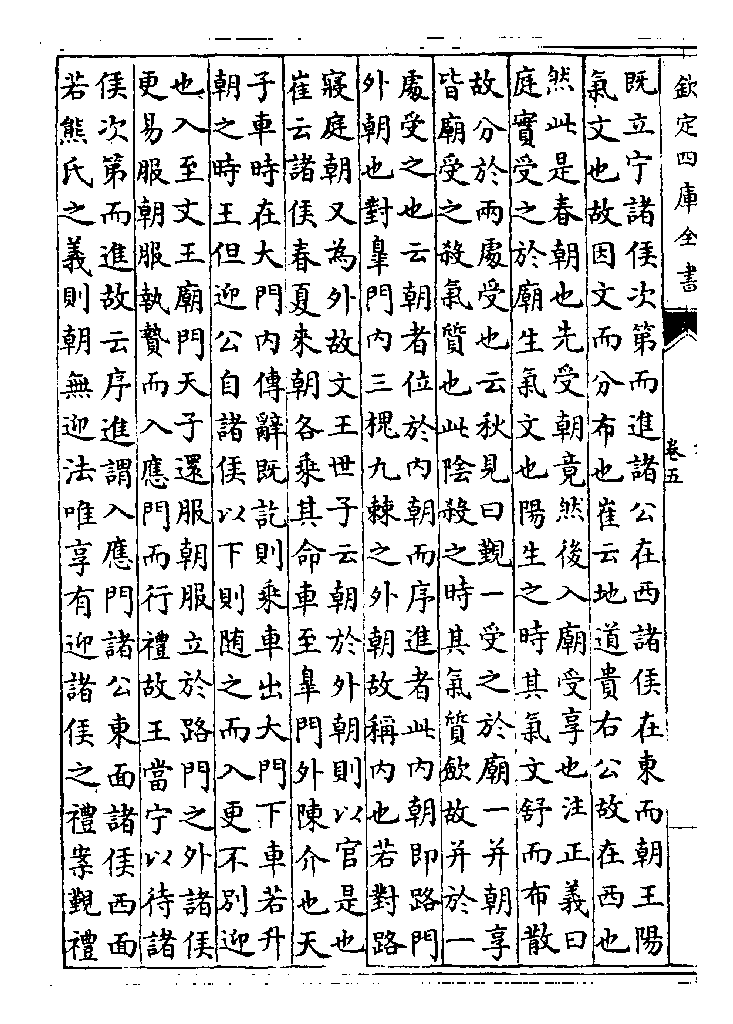 欽定四庫全書
卷五
既立宁諸侯次第而進諸公在西諸侯在東而朝王陽
氣文也故因文而分布也崔云地道貴右公故在西也
然此是春朝也先受朝竟然後入廟受享也注正義曰
庭實受之於廟生氣文也陽生之時其氣文舒而布散
故分於兩處受也云秋見曰覲一受之於廟一并朝享
皆廟受之殺氣質也此陰殺之時其氣質歛故并於一
處受之也云朝者位於内朝而序進者此内朝即路門
外朝也對臯門内三槐九棘之外朝故稱内也若對路
寢庭朝又為外故文王世子云朝於外朝則以官是也
崔云諸侯春夏來朝各乘其命車至臯門外陳介也天
子車時在大門内傳辭既訖則乘車出大門下車若升
朝之時王但迎公自諸侯以下則随之而入更不别迎
也入至文王廟門天子還服朝服立於路門之外諸侯
更易服朝服執贄而入應門而行禮故王當宁以待諸
侯次第而進故云序進謂入應門諸公東面諸侯西面
若熊氏之義則朝無迎法唯享有迎諸侯之禮案覲禮